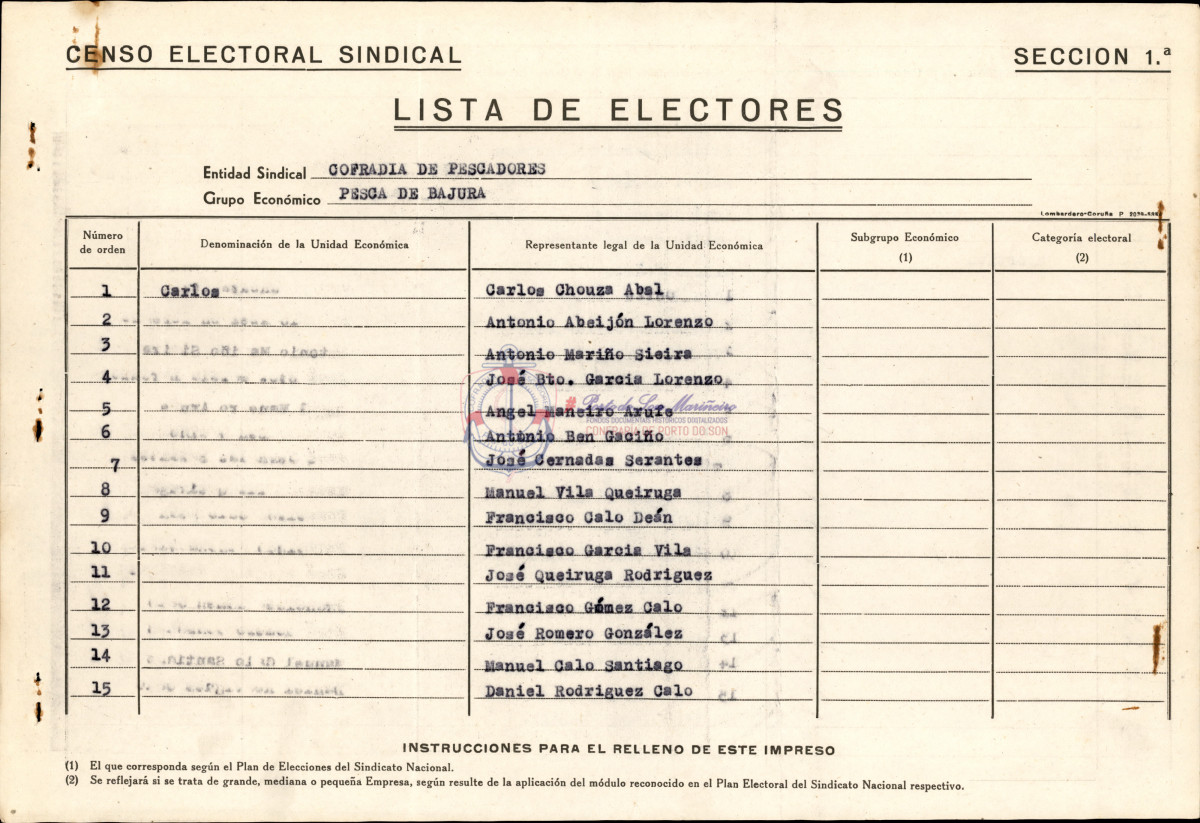 CENSO ELECTORAL SINDICAL
SECCION 1.ª
LISTA DE ELECTORES
Entidad Sindical COFRADIA DE PESCADORES
Grupo Económico PESCA DE BAJURA
Lombardero-Coruña P
Número de orden Denominación de la Unidad Económica Representante legal de la Unidad Económica Subgrupo Económico (1) Categoría electoral (2)
1 Carlos Carlos Chouza Abal
2 Antonio Abeijón Lorenzo
3 Antonio Mariño Sieira
4 José Bto. Garcia Lorenzo
5 Angel Maneiro Arufe
6 Antonio Ben Gaciño
7 José Cernadas Serantes
8 Manuel Vila Queiruga
9 Francisco Calo Deán
10 Francisco Garcia Vila
11 José Queiruga Rodriguez
12 Francisco Gómez Calo
13 José Romero González
14 Manuel Calo Santiago
15 Daniel Rodriguez Calo
# Porto do Son Mariñeiro
FONDOS DOCUMENTAIS HISTÓRICOS DIXITALIZADOS
CONFRARÍA DE PORTO DO SON
INSTRUCCIONES PARA EL RELLENO DE ESTE IMPRESO
(1) El que corresponda según el Plan de Elecciones del Sindicato Nacional.
(2) Se reflejará si se trata de grande, mediana o pequeña Empresa, según resulte de la aplicación del módulo reconocido en el Plan Electoral del Sindicato Nacional respectivo.